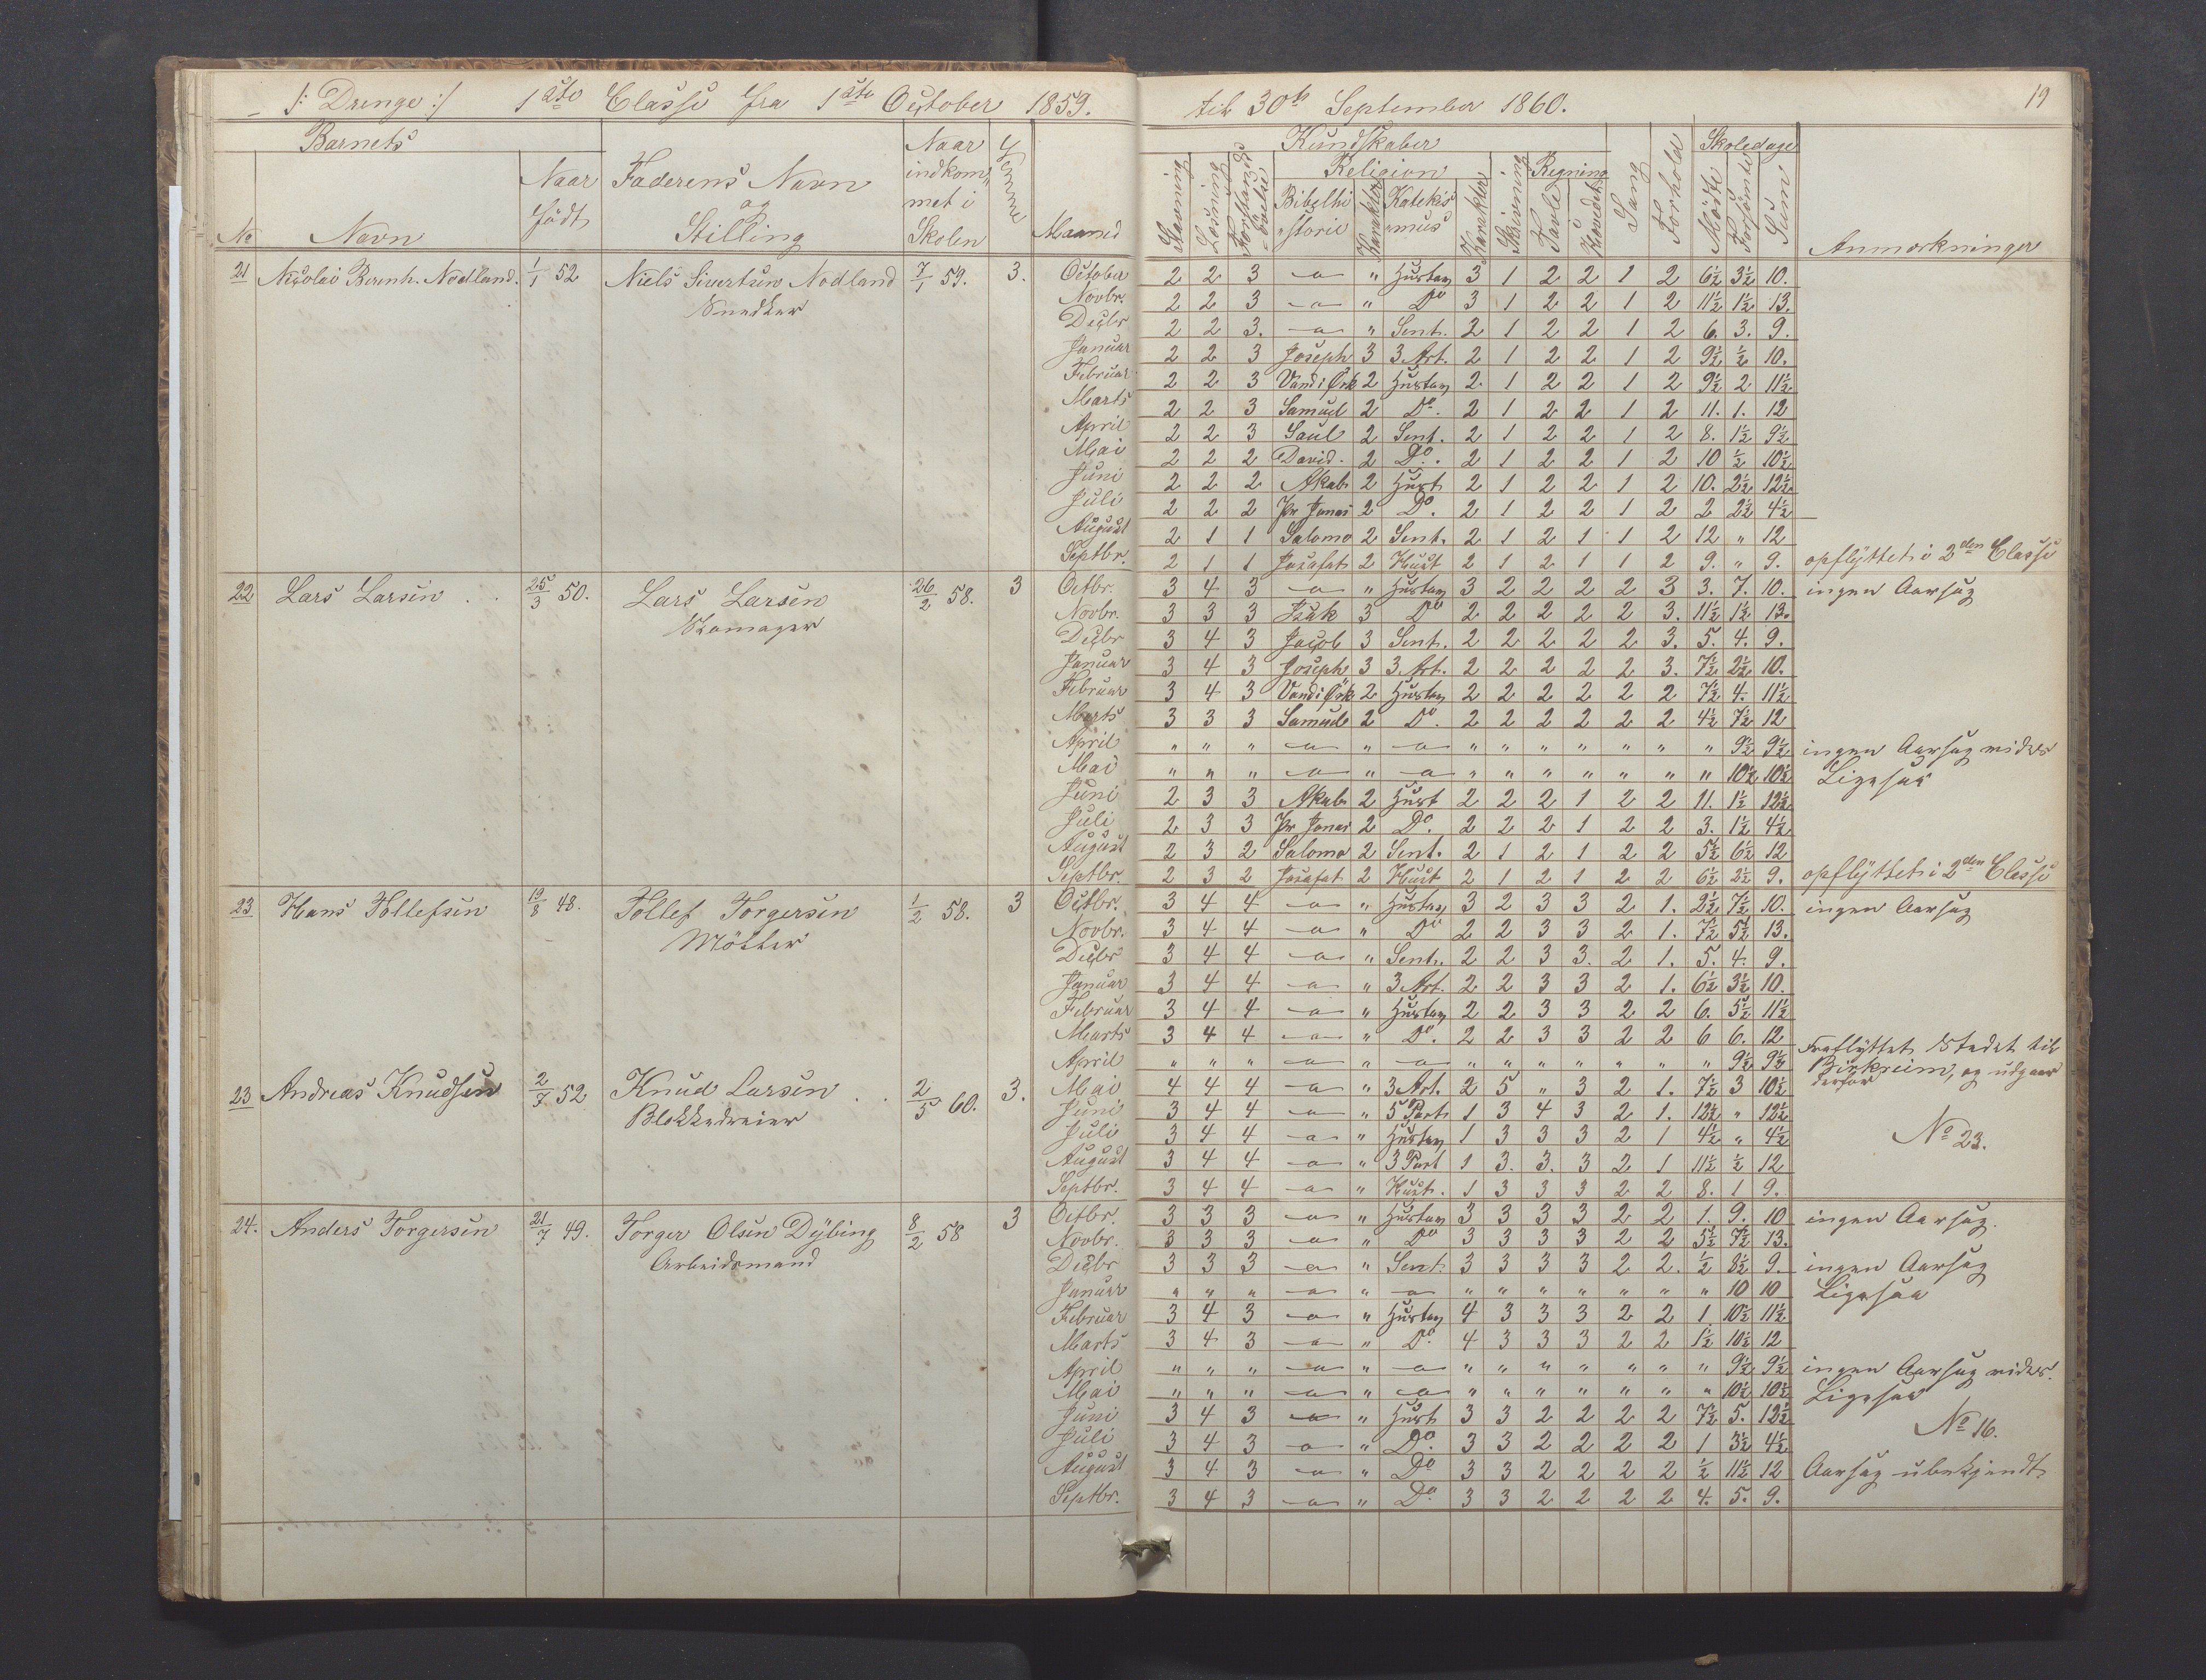 /: Drenge :/ 1ste Classe fra 1ste October 1859. til 30te September 1860. 19
Barnets Naar Evne Kundskaber Skoledage
Naar Faderens Navn indkom- Religion Regning
født og met i Bibelhi- Katekis-
No Navn Stilling Skolen Maaned Stavning Læsning Forstands-øvelse storie Karakter mus Karakter Skrivning Tavle Hovedet Sang Forhold Mødte Forsømte Sum Anmærkninger
21 Nicolai Bernh. Nodland. 1/1 52 Niels Sivertsen Nodland 7/1 59. 3. October 2 2 3 -"- " Hustav 3 1 2 2 1 2 6½ 3½ 10.
Snedker Novbr. 2 2 3 -"- " Do 3 1 2 2 1 2 11½ 1½ 13.
Decbr 2 2 3. -"- " Sent. 2 1 2 2 1 2 6. 3. 9.
Januar 2 2 3 Joseph 3 3 Art. 2 1 2 2 1 2 9½ ½ 10.
Februar 2 2 3 Vand i Ørk 2 Hustav 2 1 2 2 1 2 9½ 2 11½
Marts 2 2 3 Samuel 2 Do. 2 1 2 2 1 2 11. 1. 12
April 2 2 3 Saul 2 Sent. 2 1 2 2 1 2 8. 1½ 9½
Mai 2 2 2 David. 2 Do. 2 1 2 2 1 2 10 ½ 10½
Juni 2 2 2 Akab 2 Hust 2 1 2 2 1 2 10. 2½ 12½
Juli 2 2 2 Pr Jonas 2 Do. 2 1 2 2 1 2 2 2½ 4½
August 2 1 1 Salomo 2 Sent. 2 1 2 1 1 2 12 " 12
Septbr. 2 1 1 Josafat 2 Hust 2 1 2 1 1 2 9. " 9. opflyttet i 2den Classe
22 Lars Larsen 25/3 50. Lars Larsen 26/2 58. 3 Octbr. 3 4 3 -"- " Hustav 3 2 2 2 2 3 3. 7. 10. ingen Aarsag
Skomager Novbr. 3 3 3 Isak 3 Do 2 2 2 2 2 3. 11½ 1½ 13.
Decbr 3 4 3 Jacob 3 Sent. 2 2 2 2 2 3. 5. 4. 9.
Januar 3 4 3 Joseph 3 3 Art. 2 2 2 2 2 3. 7½ 2½ 10.
Februar 3 4 3 Vand i Ørk 2 Hustav 2 2 2 2 2 2 7½ 4. 11½
Marts 3 3 3 Samuel 2 Do. 2 2 2 2 2 2 4½ 7½ 12
April " " " -"- " -"- " " " " " " " 9½ 9½ ingen Aarsag vides
Mai " " " -"- " -"- " " " " " " " 10½ 10½ Ligesaa
Juni 2 3 3 Akab 2 Hust 2 2 2 1 2 2 11. 1½ 12½
Juli 2 3 3 Pr Jonas 2 Do. 2 2 2 1 2 2 3. 1½ 4½
August 2 3 2 Salomo 2 Sent. 2 1 2 1 2 2 5½ 6½ 12
Septbr. 2 3 2 Josafat 2 Hust 2 1 2 1 2 2 6½ 2½ 9. opflyttet i 2den Classe
23 Hans Tollefsen 19/8 48. Tollef Torgersen 1/2 58. 3 Octbr. 3 4 4 -"- " Hustav 3 2 3 3 2 1. 2½ 7½ 10. ingen Aarsag
Møller Novbr. 3 4 4 -"- " Do 2 2 3 3 2 1. 7½ 5½ 13.
Decbr 3 4 4 -"- " Sent. 2 2 3 3. 2 1. 5. 4. 9.
Januar 3 4 4 -"- " 3 Art. 2 2 3 3 2 1. 6½ 3½ 10.
Februar 3 4 4 -"- " Hustav 2 2 3 3 2 2 6. 5½ 11½
Marts 3 4 4 -"- " Do. 2 2 3 3 2 2 6 6. 12 Fraflyttet Stedet til
April " " " -"- " -"- " " " " " " " 9½ 9½ Birkreim, og udgaar
23 Andreas Knudsen 2/7 52 Knud Larsen 2/5 60. 3. Mai 4 4 4 -"- " 3 Art. 2 5 " 3 2 1. 7½ 3 10½ derfor
Blokkedreier Juni 3 4 4 -"- " 5 Part 1 3 4 3 2 1. 12½ " 12½
Juli 3 4 4 -"- " Hustav 1 3 3 3 2 1 4½ " 4½ No 23.
August 3 4 4 -"- " 3 Part 1 3. 3. 3 2 1 11½ ½ 12
Septbr. 3 4 4 -"- " Hust. 1 3 3 3 2 2 8. 1 9.
24. Anders Torgersen 21/7 49. Torger Olsen Dybing 8/2 58 3 Octbr. 3 3 3 -"- " Hustav 3 3 3 3 2 2 1. 9. 10 ingen Aarsag.
Arbeidsmand Novbr. 3 3 3 -"- " Do 3 3 3 3 2 2 5½ 7½ 13.
Decbr 3 3 3 -"- " Sent 3 3 3 3 2 2. ½ 8½ 9. ingen Aarsag
Januar " " " -"- " -"- " " " " " " " 10 10 Ligesaa
Februar 3 4 3 -"- " Hustav 4 3 3 3 2 2 1 10½ 11½
Marts 3 4 3 -"- " Do. 4 3 3 3 2 2 1½ 10½ 12
April " " " -"- " -"- " " " " " " " 9½ 9½ ingen Aarsag vides.
Mai " " " -"- " -"- " " " " " " " 10½ 10½ Ligesaa
Juni 3 4 3 -"- " Hust 3 3 2 2 2 2 7½ 5. 12½ No 16.
Juli 3 4 3 -"- " Do. 3 3 2 2 2 2 1 3½ 4½
August 3 4 3 -"- " Do 3 3 2 2 2 2 ½ 11½ 12 Aarsag ubekjendt
Septbr. 3 4 3 -"- " Do. 3 3 2 2 2 2 4. 5. 9.